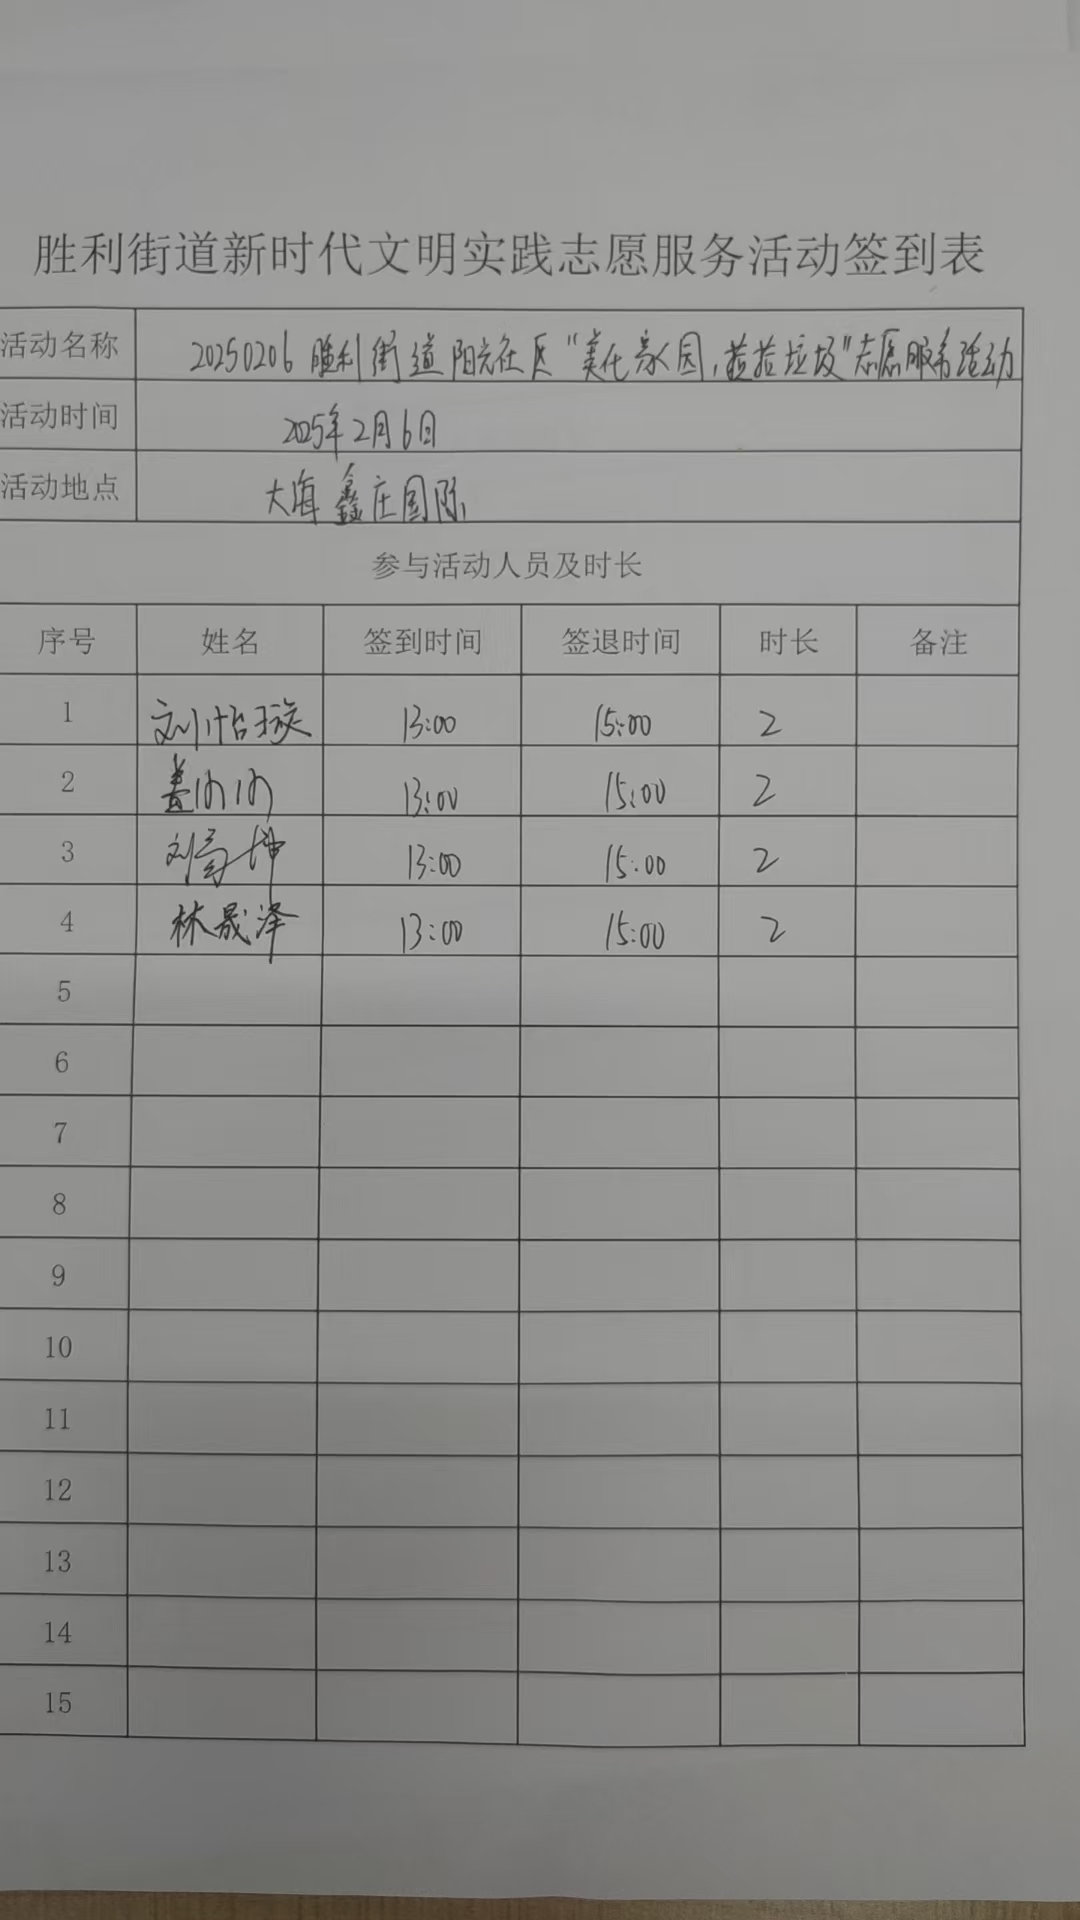 胜利街道新时代文明实践志愿服务活动签到表
活动名称 20250206胜利街道阳光社区“美化家园，捡拾垃圾”志愿服务活动
活动时间 2025年2月6日
活动地点 大海鑫庄国际
参与活动人员及时长
序号 姓名 签到时间 签退时间 时长 备注
1 刘怡璇 13:00 15:00 2
2 13:00 15:00 2
3 刘 坤 13:00 15:00 2
4 林晟泽 13:00 15:00 2
5
6
7
8
9
10
11
12
13
14
15